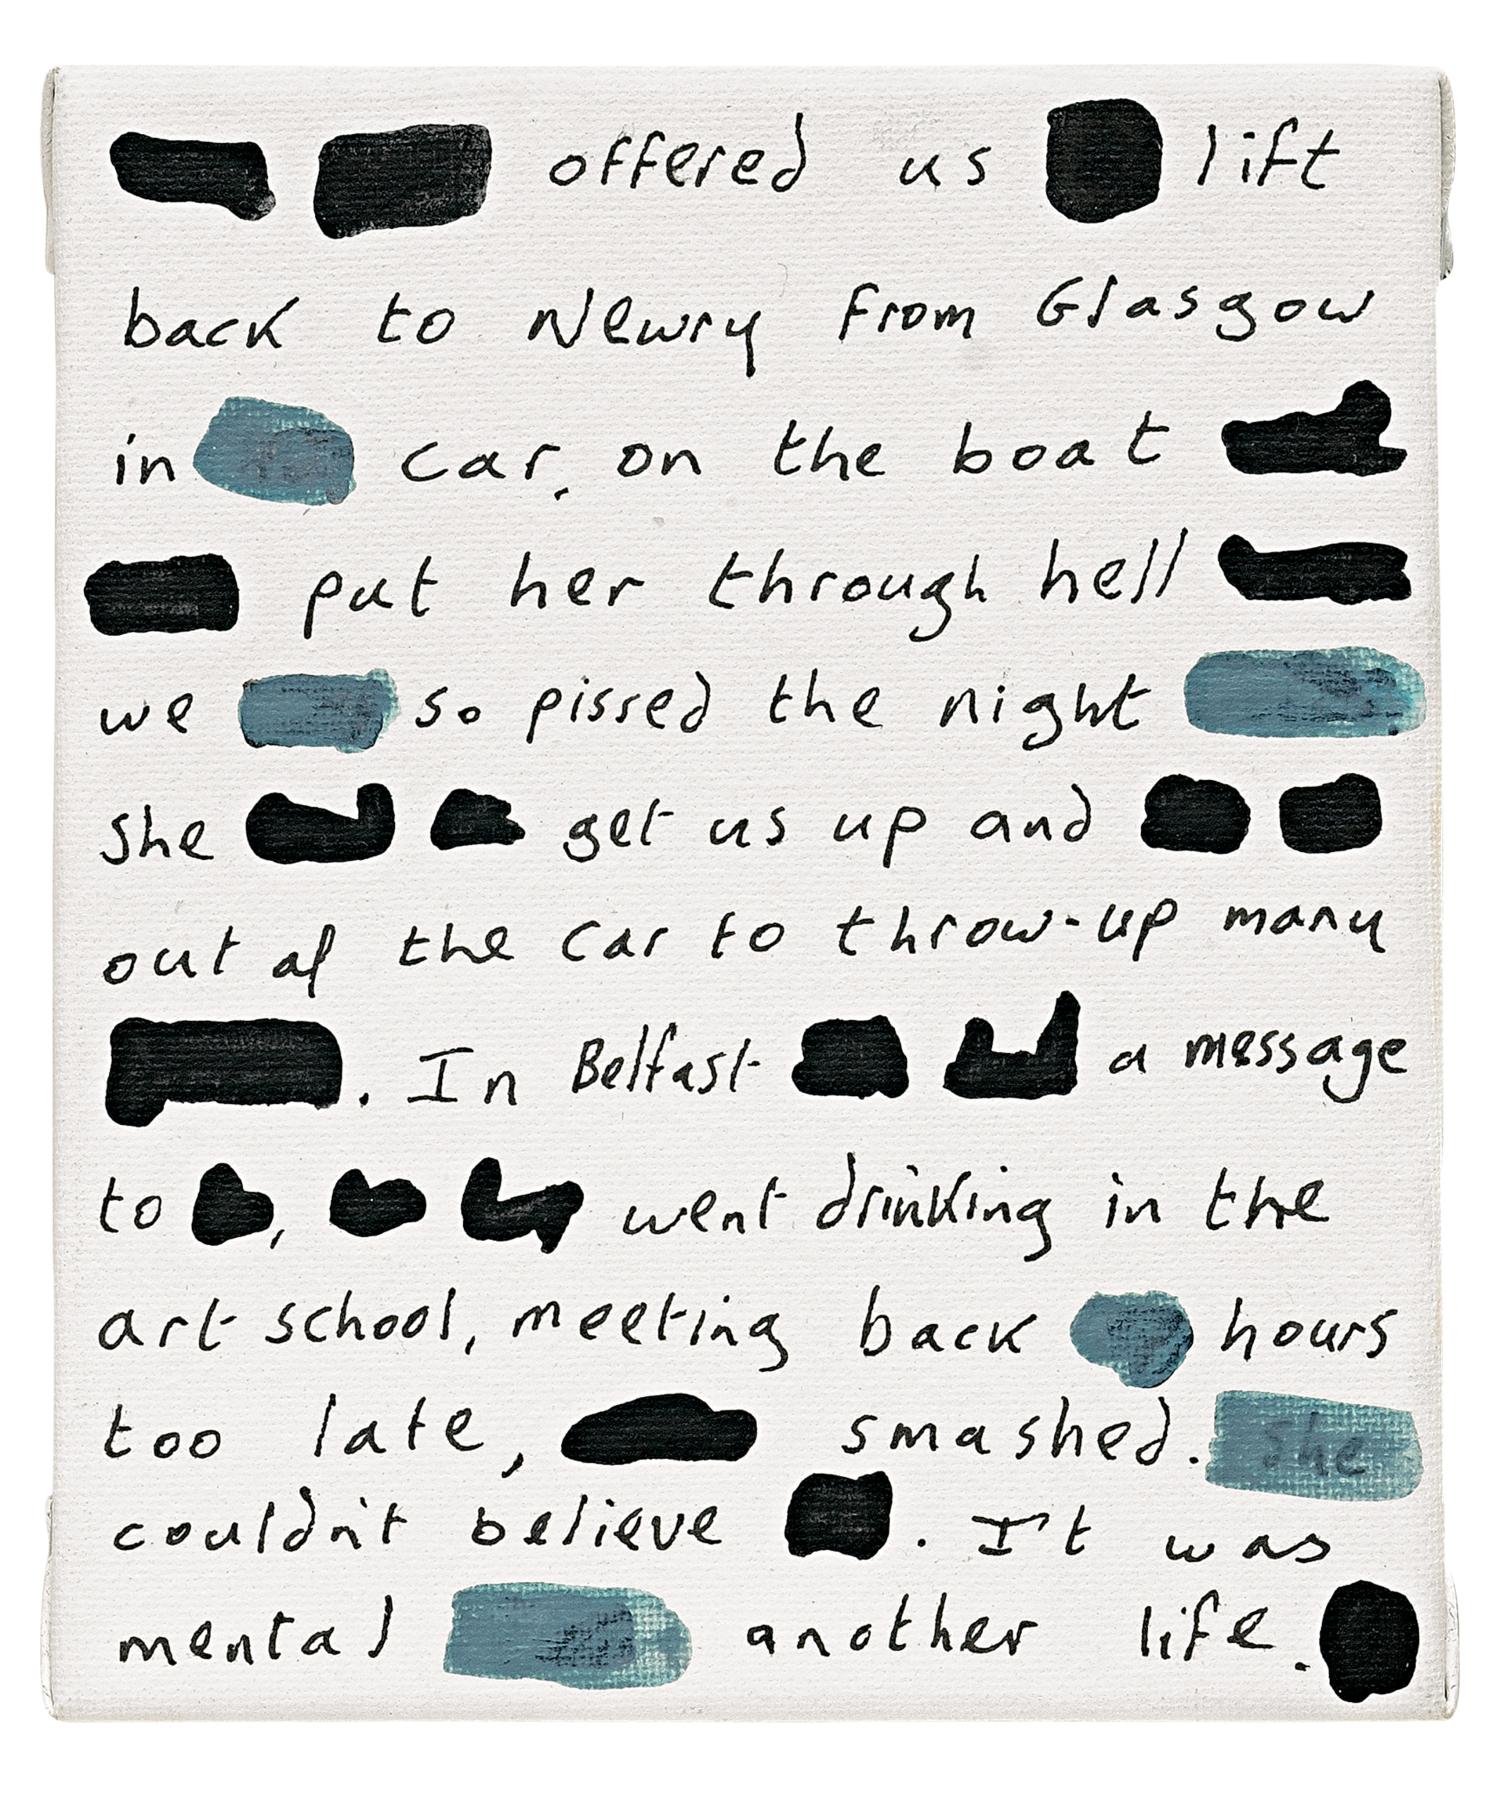 offered us lift
back to Newry from Glasgow
in car, on the boat
put her through hell
we so pissed the night
she get us up and
out of the car to throw-up many
. In Belfast a message
to , went drinking in the
art school, meeting back hours
too late, smashed. She
couldn't believe . It was
mental another life.